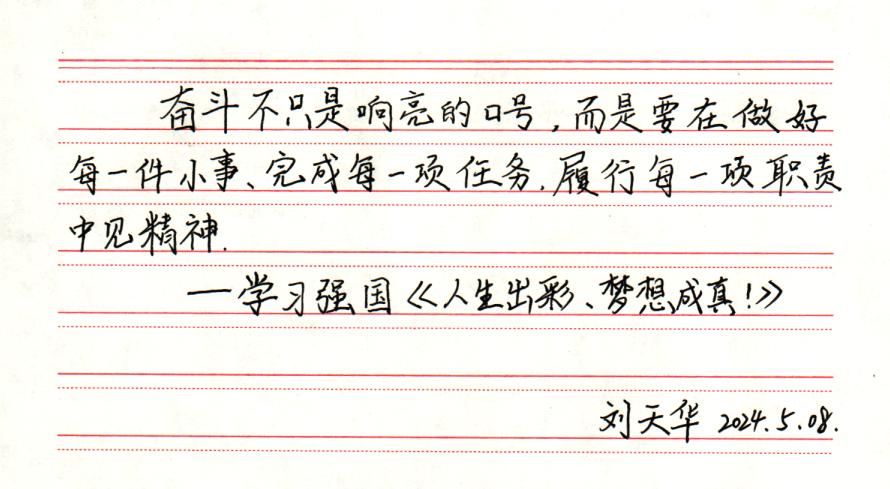 奋斗不只是响亮的口号,而是要在做好
每一件小事、完成每一项任务.履行每一项职责
中见精神.
—学习强国《人生出彩、梦想成真!》
刘天华 2024.5.08.